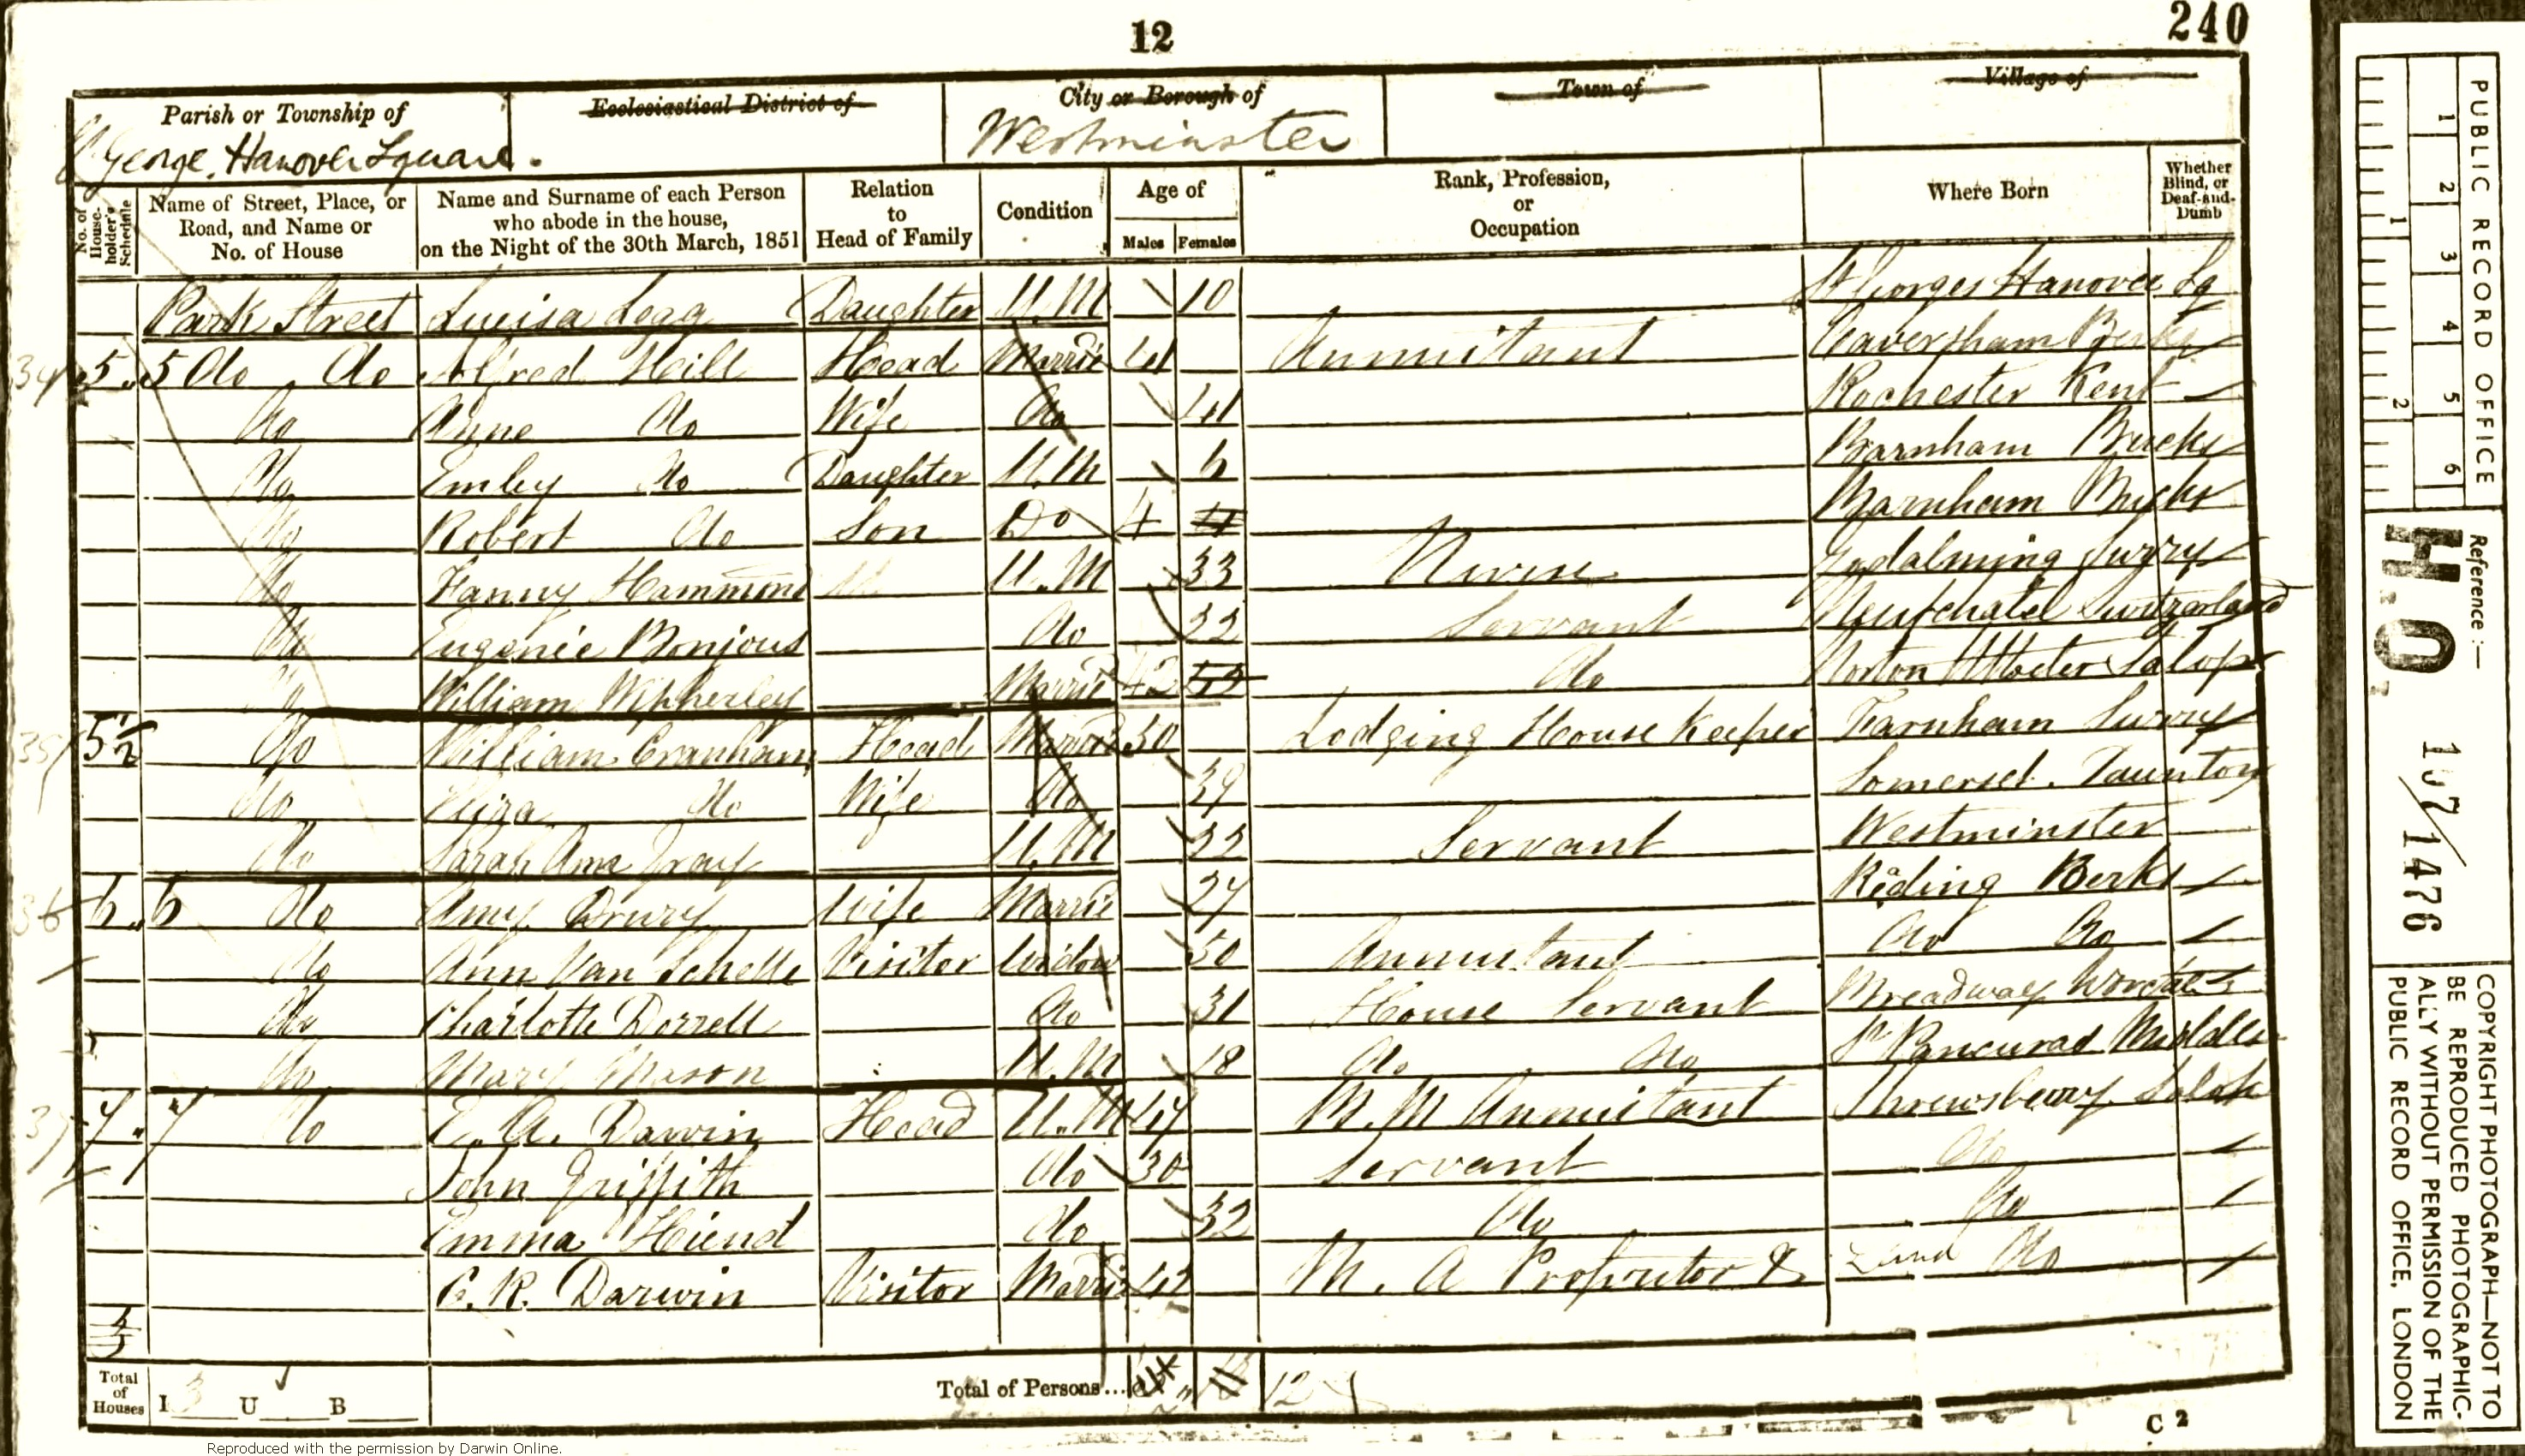 12
240
Parish or Township of
St George, Hanover Square.
Ecclesiastical District of
City or Borough of
Westminster
Town of
Village of
No. of House-holder's Schedule
Name of Street, Place, or Road, and Name or No. of House
Name and Surname of each Person who abode in the house, on the Night of the 30th March, 1851
Relation to Head of Family
Condition
Age of
Males Females
Rank, Profession, or Occupation
Where Born
Whether Blind, or Deaf-and-Dumb
Park Street Lueisa Legg Daughter U.M 10 St Georges Hanover Sq
34 5 5 do do Alfred Hill Head Married 41 Annuitant Caversham Berks
do Anne do Wife do 41 Rochester Kent
do Emley do Daughter U.M 6 Barnham Bucks
do Robert do Son Do 4 4 Barnham Bucks
do Fanny Hammond U.M 33 Nurse Godalming Surry
do Eugenie Bonjous do 33 Servant Neufchatel Switzerland
do William Married 42 do Norton Salop
35 5½ do William Cranham Head Married 30 Lodging House Keeper Farnham Surry
do do Wife do 39 Somerset. Taunton
do Sarah Ann Gray U.M 32 Servant Westminster
36 6 6 do Amy Drury Wife Married 27 Reding Berks
do Ann Van Schelle Visitor Widow 50 Annuitant do do
do Charlotte Dorrell do 31 House Servant Breadway
do Mary Mason U.M 18 do do St Pancuras
37 7 7 do E. A. Darwin Head U.M Annuitant Shrewsberry Salop
John Griffith do 30 Servant do
Emma Hiend do 32 do do
C. R. Darwin Visitor Married 42 M. A Proprietor & Land do
Total of Houses
I 3 U B
Total of Persons...
12
C 2
PUBLIC RECORD OFFICE
1 2 3 4 5 6
1 2
Reference:—
H.O. 107/1476
COPYRIGHT PHOTOGRAPH—NOT TO
BE REPRODUCED PHOTOGRAPHIC-
ALLY WITHOUT PERMISSION OF THE
PUBLIC RECORD OFFICE, LONDON
Reproduced with the permission by Darwin Online.